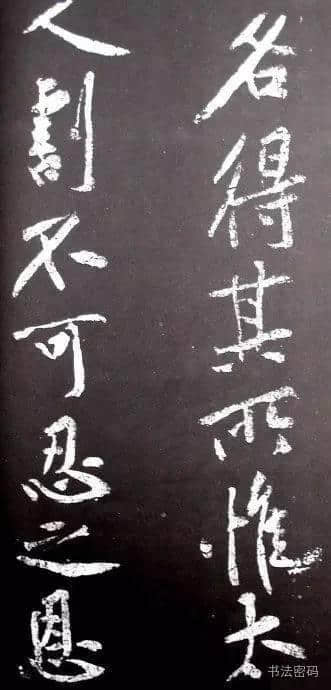 各得其所惟太
人割不可忍之恩
书法密码